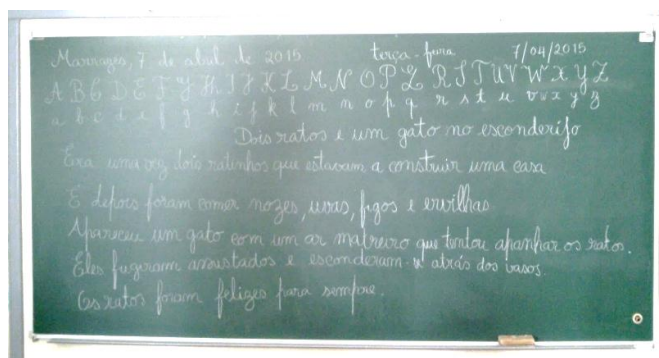 Marrazes, 7 de abril de 2015 terça-feira 7/04/2015
A B C D E F G H I J K L M N O P Q R S T U V W X Y Z
a b c d e f g h i j k l m n o p q r s t u v w x y z
Dois ratos e um gato no esconderijo
Era uma vez dois ratinhos que estavam a construir uma casa
E depois foram comer nozes, uvas, figos e ervilhas.
Apareceu um gato com um ar matreiro que tentou apanhar os ratos.
Eles fugiram assustados e esconderam-se atrás dos vasos.
Os ratos foram felizes para sempre.